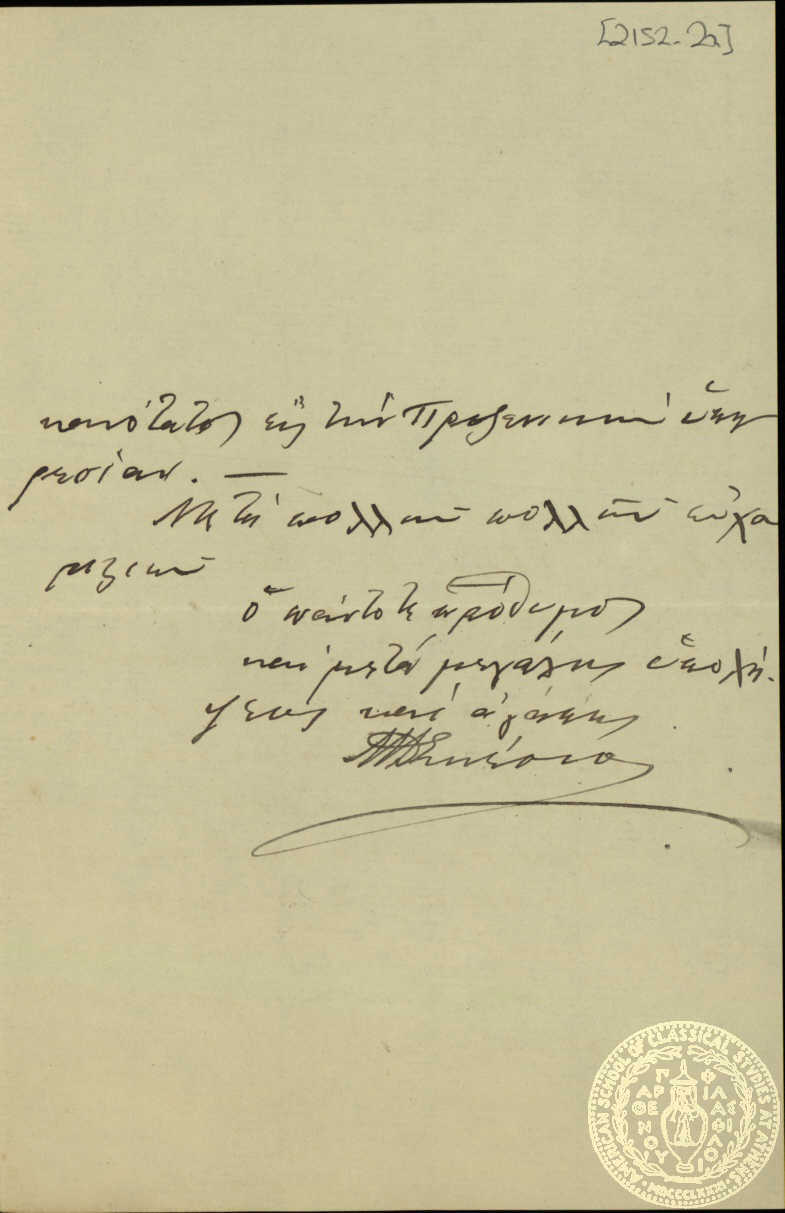 [2152-2a]
κανότατος εἰς τὴν Προξενικὴν ὑπη
ρεσίαν. —
Μετὰ πολλῶν πολλῶν εὐχα
ριστιῶν
ὁ πάντοτε πρόθυμος
καὶ μετὰ μεγάλης ὑπολή-
ψεως καὶ ἀγάπης
AMERICAN SCHOOL OF CLASSICAL STUDIES AT ATHENS
ΠΑΡΘΕΝΟΥ ΦΙΛΑΣ ΦΙΛΟΙ
MDCCCLXXXI